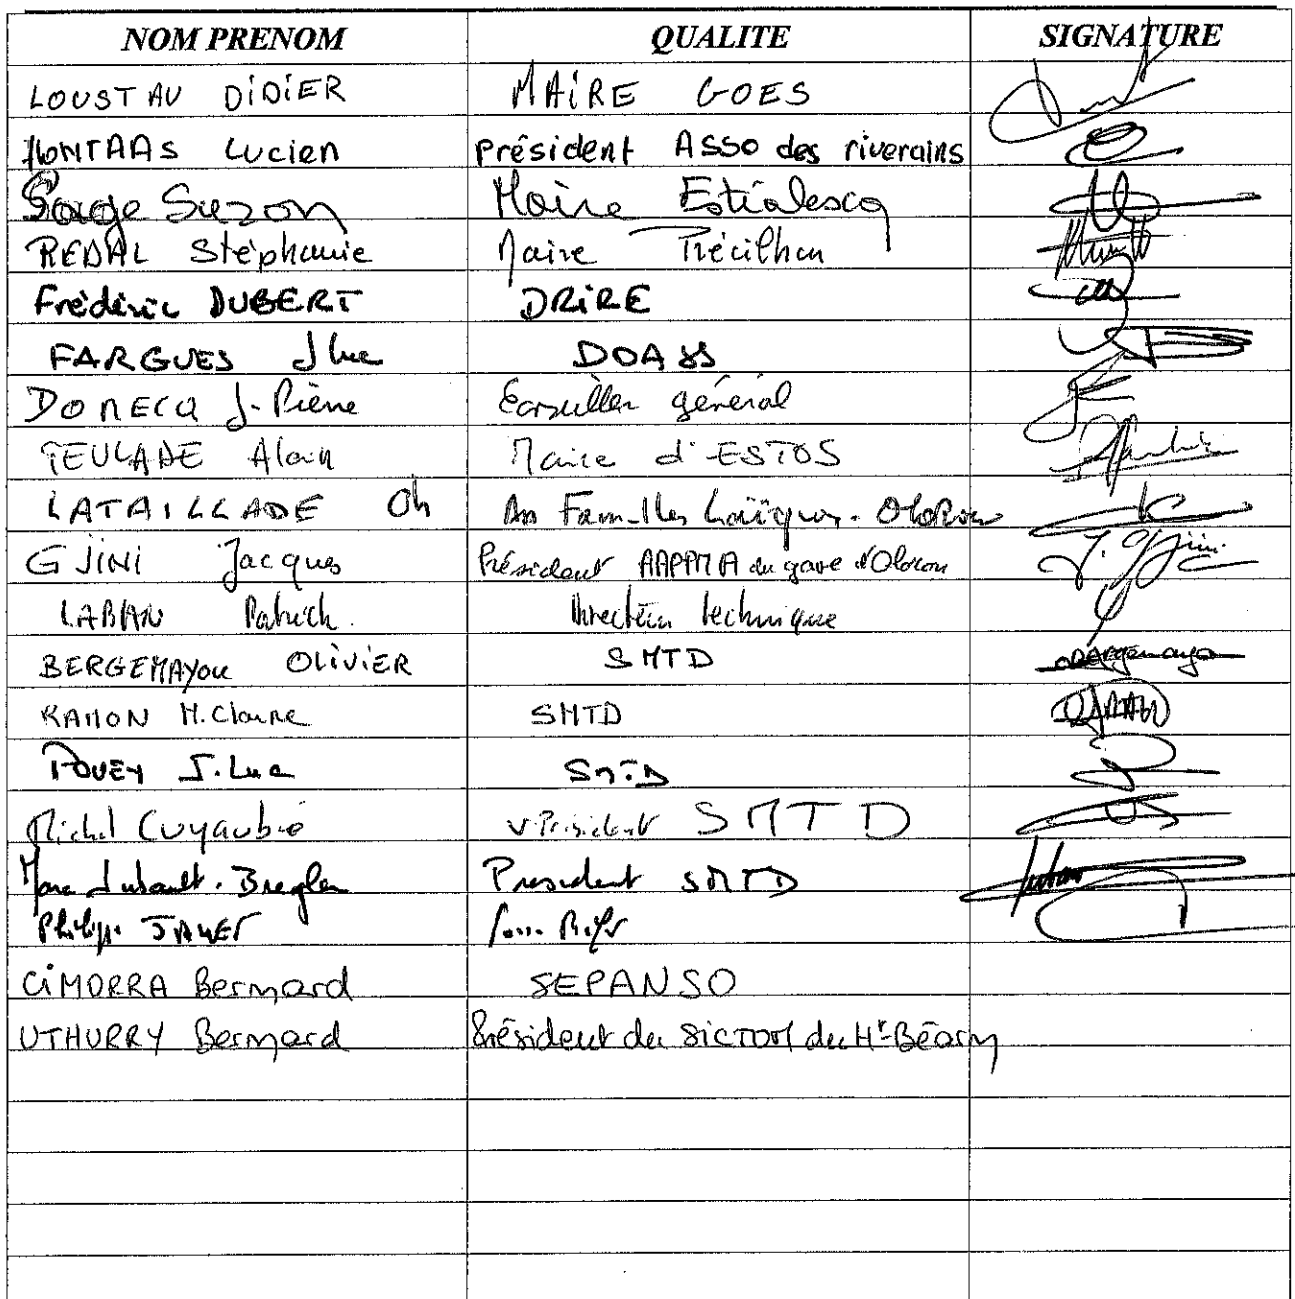 NOM PRENOM QUALITE SIGNATURE
LOUSTAU DIDIER MAIRE GOES
Lucien président ASSO des riverains
Suzon Maire Estialescq
REDAL Stéphanie Maire Précilhon
Frédéric DUBERT DRIRE
FARGUES J Luc
DOMECQ J. Pierre général
TEULADE Alain Maire d'ESTOS
LATAILLADE Ch Familles Laïques. OLORON
GJINI Jacques Président AAPPMA du gave d'Oloron J. Gjini
LABAN Patrick. technique
BERGEMAYOU OLIVIER SMTD
RAMON M. Claire SMTD
POUEY J. Luc SMTD
Michel Cuyaubé V. Président SMTD
Marc President SMTD
Philippe
CIMORRA Bernard SEPANSO
UTHURRY Bernard Président du SICTOM du Ht-Béarn